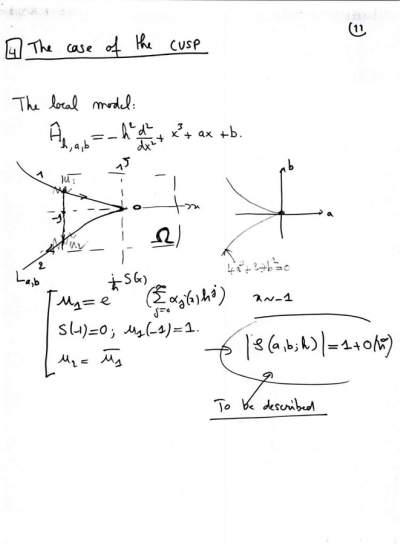 (11)
4 The case of the CUSP
The local model:
Â_{h,a,b} = -h² d²/dx² + x³ + ax + b.
1 u₁ ξ b
-1 0 x a
2 u₂ Ω
L_{a,b} 4a³+27b²=0
u₁ = e^{i/h S(x)} (∑_{j=0}^∞ α_j(x) h^j) x ~ -1
S(-1)=0; u₁(-1)=1.
u₂ = ū₁
→ |S(a,b;h)| = 1+O(h^∞)
To be described